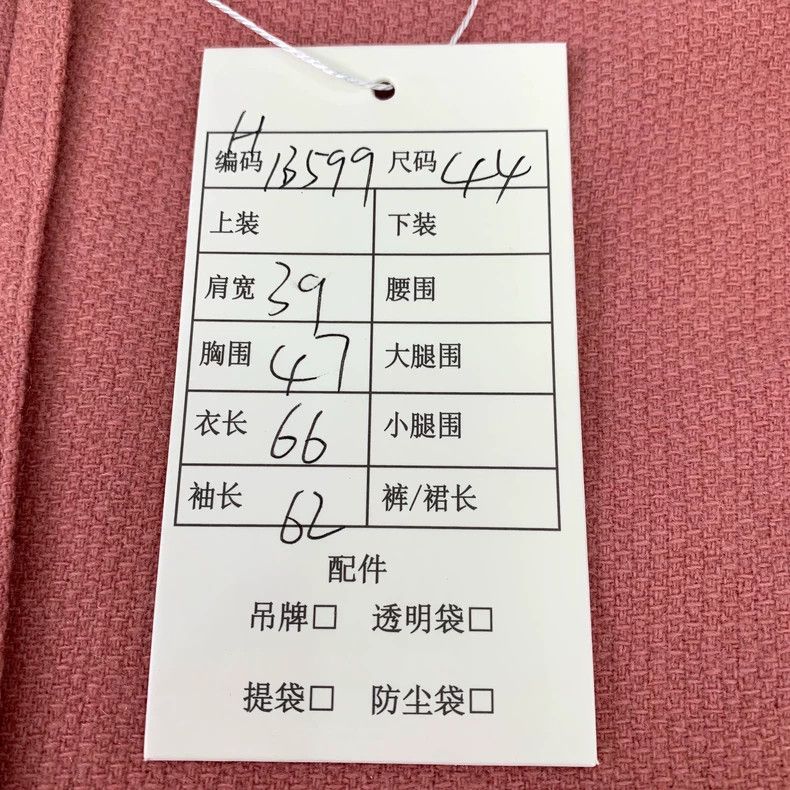 H
编码 13599 尺码 44
上装 下装
肩宽 39 腰围
胸围 47 大腿围
衣长 66 小腿围
袖长 62 裤/裙长
配件
吊牌□ 透明袋□
提袋□ 防尘袋□